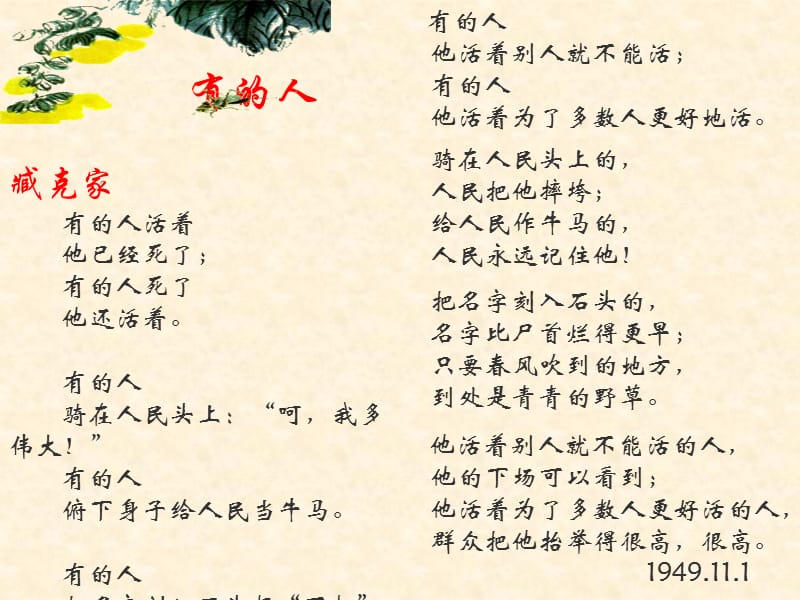 有的人
臧克家
有的人活着
他已经死了；
有的人死了
他还活着。
有的人
骑在人民头上：“呵，我多
伟大！”
有的人
俯下身子给人民当牛马。
有的人
有的人
他活着别人就不能活；
有的人
他活着为了多数人更好地活。
骑在人民头上的，
人民把他摔垮；
给人民作牛马的，
人民永远记住他！
把名字刻入石头的，
名字比尸首烂得更早；
只要春风吹到的地方，
到处是青青的野草。
他活着别人就不能活的人，
他的下场可以看到；
他活着为了多数人更好活的人，
群众把他抬举得很高，很高。
1949.11.1